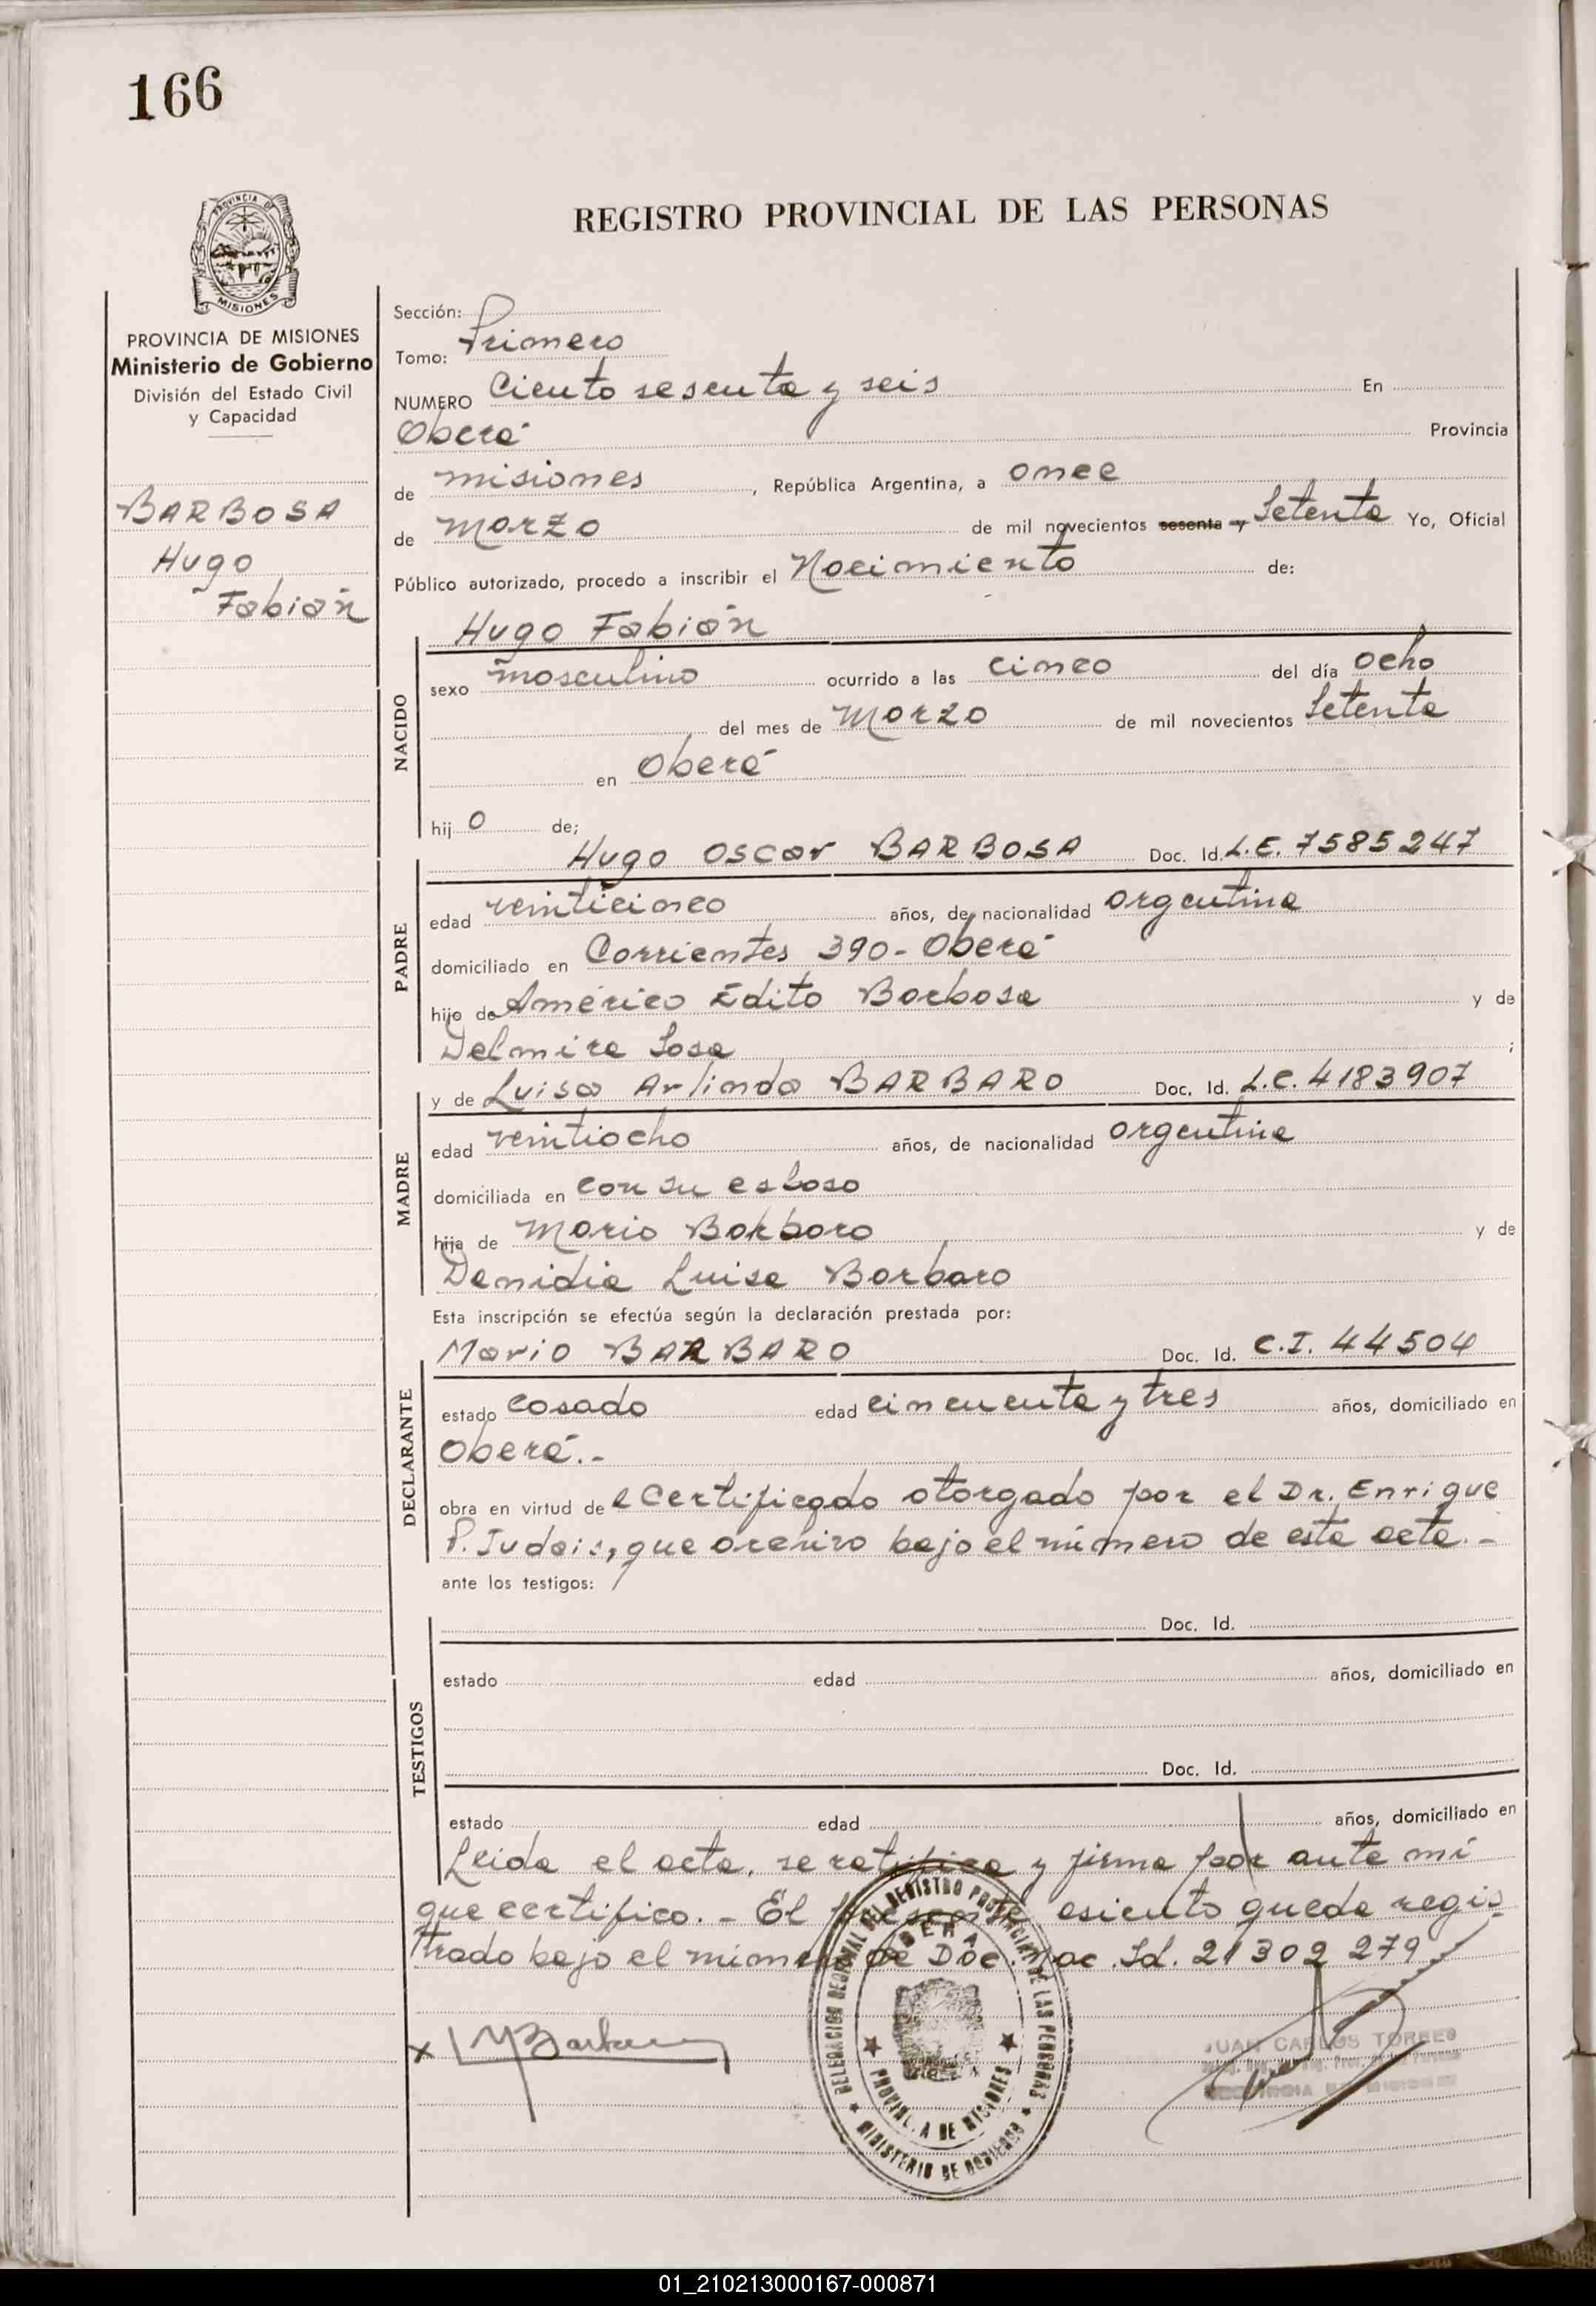 166
PROVINCIA DE
MISIONES
REGISTRO PROVINCIAL DE LAS PERSONAS
PROVINCIA DE MISIONES
Ministerio de Gobierno
División del Estado Civil
y Capacidad
BARBOSA
Hugo
Fabián
Sección:
Tomo: Primero
NUMERO Ciento sesenta y seis En
Oberá Provincia
de misiones, República Argentina, a once
de Marzo de mil novecientos sesenta y Setenta Yo, Oficial
Público autorizado, procedo a inscribir el Nacimiento de:
Hugo Fabián
NACIDO
sexo masculino ocurrido a las cinco del día ocho
del mes de Marzo de mil novecientos Setenta
en Oberá
hij o de;
Hugo Oscar BARBOSA Doc. Id. L.E. 7585247
PADRE
edad veinticinco años, de nacionalidad argentina
domiciliado en Corrientes 390- Oberá
hijo de Américo Edito Barbosa y de
Delmira Sosa ;
y de Luisa Arlinda BARBARO Doc. Id. L.C. 4183907
MADRE
edad veintiocho años, de nacionalidad argentina
domiciliada en con su esposo
hija de Mario Barbaro y de
Denidia Luisa Barbaro
Esta inscripción se efectúa según la declaración prestada por:
Mario BARBARO Doc. Id. C.I. 44504
DECLARANTE
estado casado edad cincuenta y tres años, domiciliado en
Oberá.-
obra en virtud de l Certificado otorgado por el Dr. Enrique
P. Judais, que archivo bajo el número de esta acta.-
ante los testigos:
TESTIGOS
Doc. Id.
estado edad años, domiciliado en
Doc. Id.
estado edad años, domiciliado en
Leida el acta, se ratifica y firma por ante mí
que certifico.- El presente asiento queda regis-
trado bajo el número de Doc. Nac. Id. 21302279
x M Barbaro
DELEGACION REGIONAL DEL REGISTRO PROVINCIAL DE LAS PERSONAS
OBERA
PROVINCIA DE MISIONES
MINISTERIO DE GOBIERNO
JUAN CARLOS TORRES
01_210213000167-000871